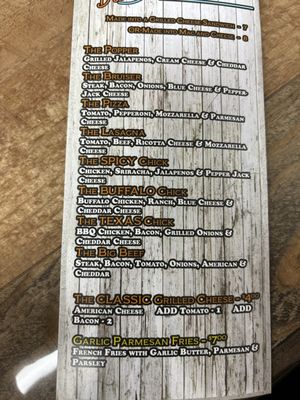 Made into a Grilled Cheese Sandwich - 7
OR-Made into Mac and Cheese - 8
The Popper
Grilled Jalapenos, Cream Cheese & Cheddar
Cheese
The Bruiser
Steak, Bacon, Onions, Blue Cheese & Pepper
Jack Cheese
The Pizza
Tomato, Pepperoni, Mozzarella & Parmesan
Cheese
The Lasagna
Tomato, Beef, Ricotta Cheese & Mozzarella
Cheese
The SPICY Chick
Chicken, Sriracha, Jalapenos & Pepper Jack
Cheese
The BUFFALO Chick
Buffalo Chicken, Ranch, Blue Cheese &
Cheddar Cheese
The TEXAS Chick
BBQ Chicken, Bacon, Grilled Onions &
Cheddar Cheese
The Big Beef
Steak, Bacon, Tomato, Onions, American &
Cheddar
The CLASSIC Grilled Cheese - $4.00
American Cheese ADD Tomato - 1 ADD
Bacon - 2
Garlic Parmesan Fries - $7.00
French Fries with Garlic Butter, Parmesan &
Parsley